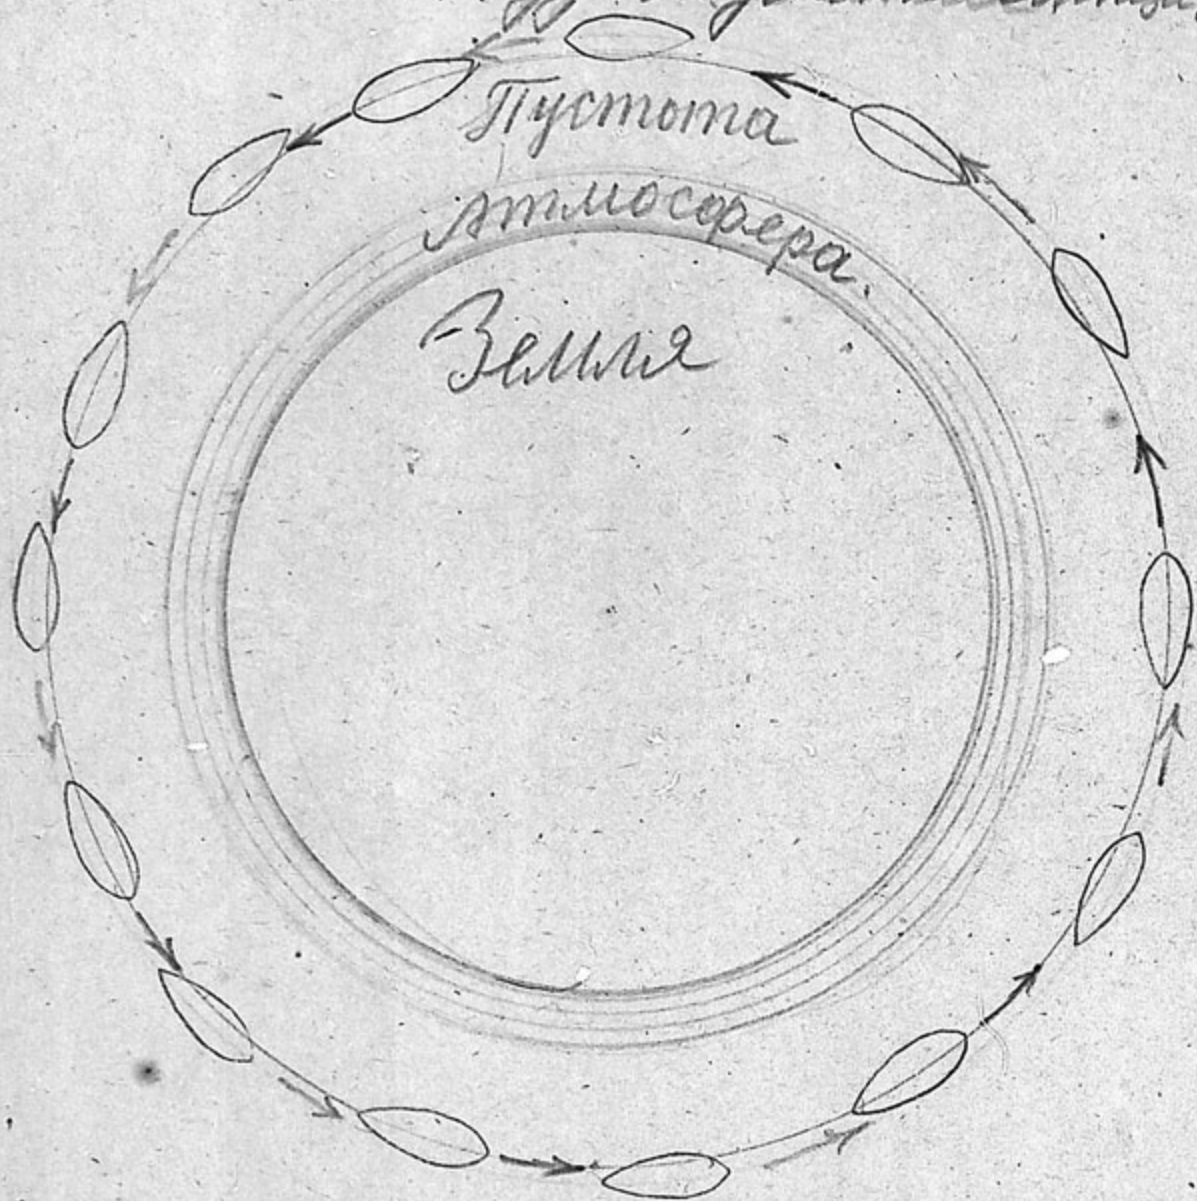 Пустота
Атмосфера.
Земля